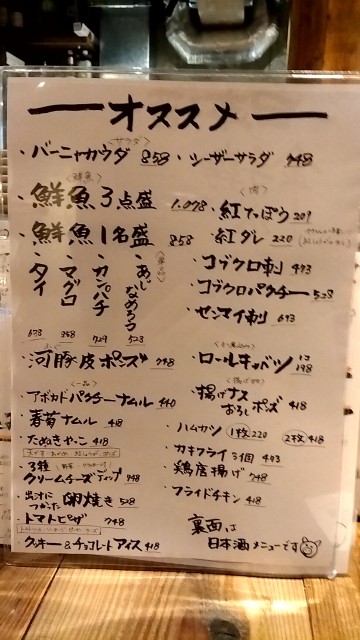 オススメ
〈サラダ〉
・バーニャカウダ 858
・シーザーサラダ 748
〈鮮魚〉
・鮮魚3点盛 1,078
・鮮魚1名盛 858
・タイ 673
・マグロ 358
・カンパチ 729
・あじなめろう 528
・河豚皮ポンズ 748
〈一品〉
・アボカドパクチーナムル 440
・春菊ナムル 418
・たぬきやっこ 418
・3種クリームチーズディップ 748
・出汁につかった卵焼き 528
・トマトピザ 748
・クッキー&チョコレートアイス 418
〈肉〉
・紅てっぽう 209
・紅ダレ 220
・コブクロ刺 493
・コブクロパクチー 528
・センマイ刺 693
・ロールキャベツ 1コ 198
〈揚げ物〉
・揚げナスおろしポンズ 418
・ハムカツ 1枚220 2枚418
・カキフライ3個 493
・鶏唐揚げ 748
・フライドチキン 418
裏面は
日本酒メニューです